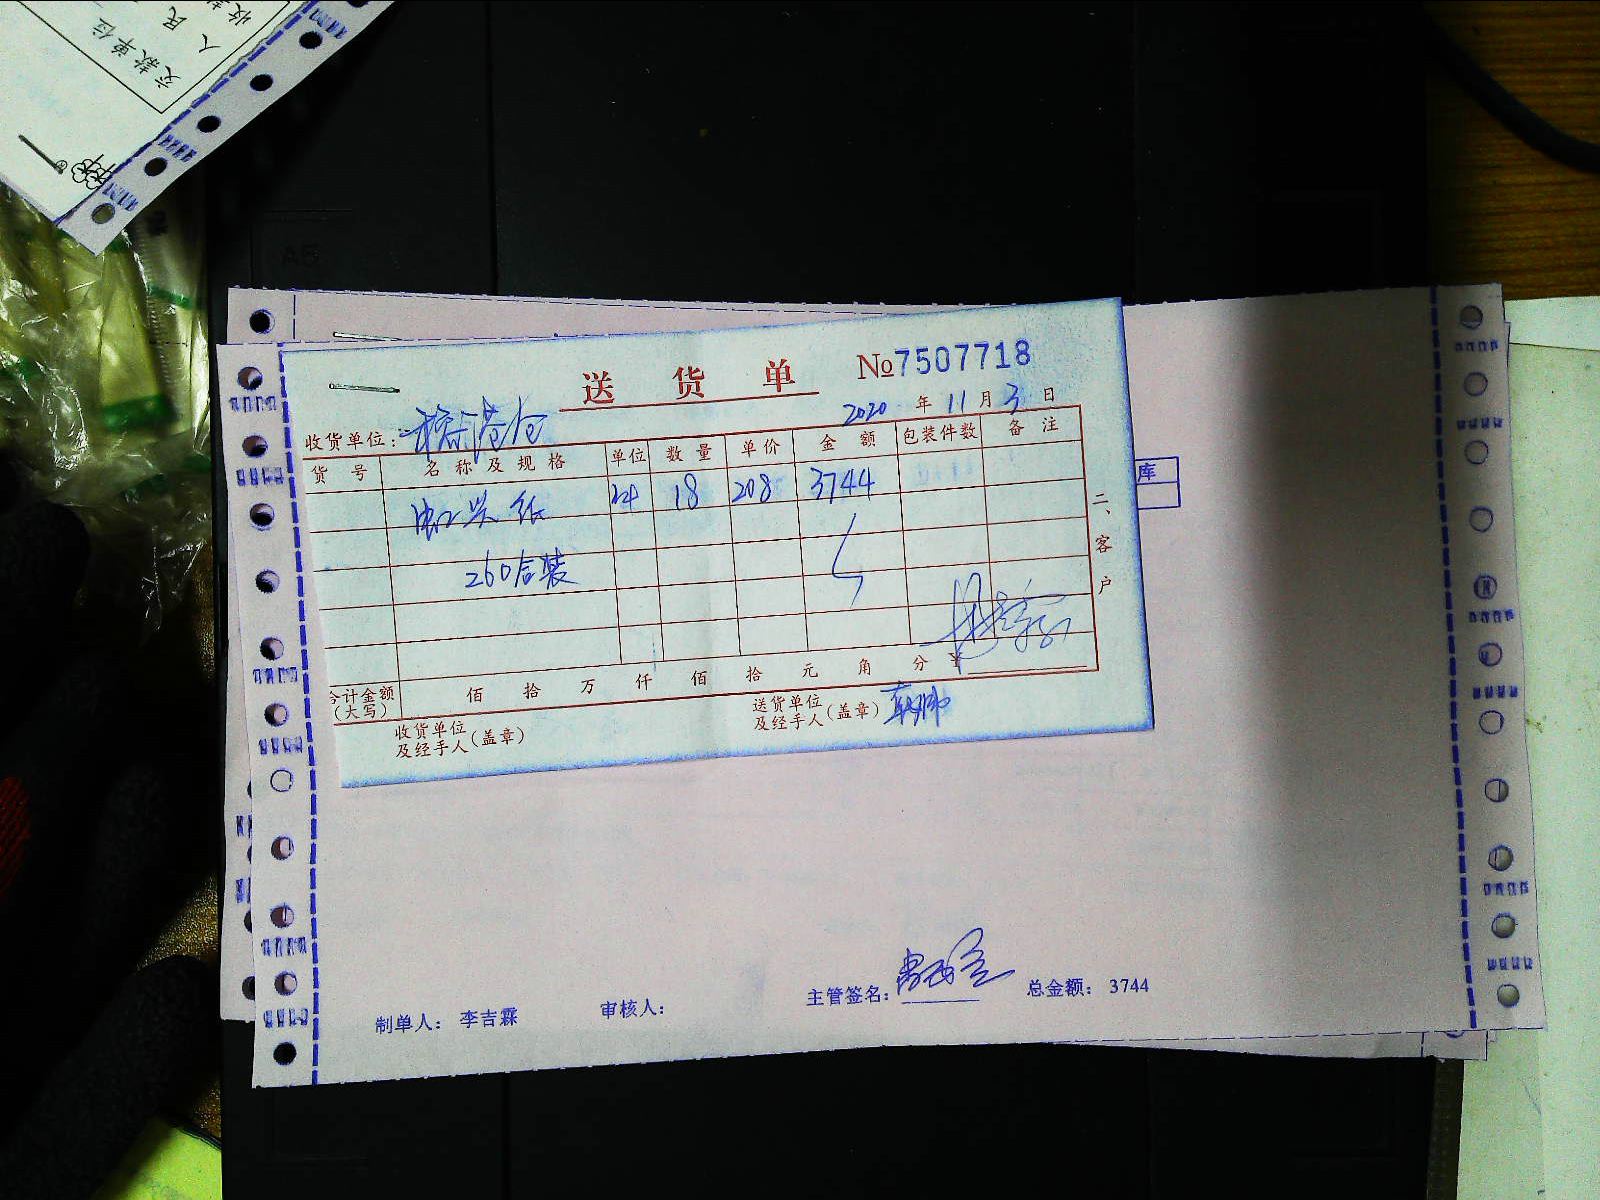 交款单位
人民
收款
送货单 №7507718
2020年11月3日
收货单位:
货号 名称及规格 单位 数量 单价 金额 包装件数 备注
纸 18 208 3744
260合装
二、客户
合计金额(大写) 佰 拾 万 仟 佰 拾 元 角 分 ¥
收货单位及经手人(盖章)
送货单位及经手人(盖章)
库
制单人: 李吉霖 审核人: 主管签名: 总金额: 3744